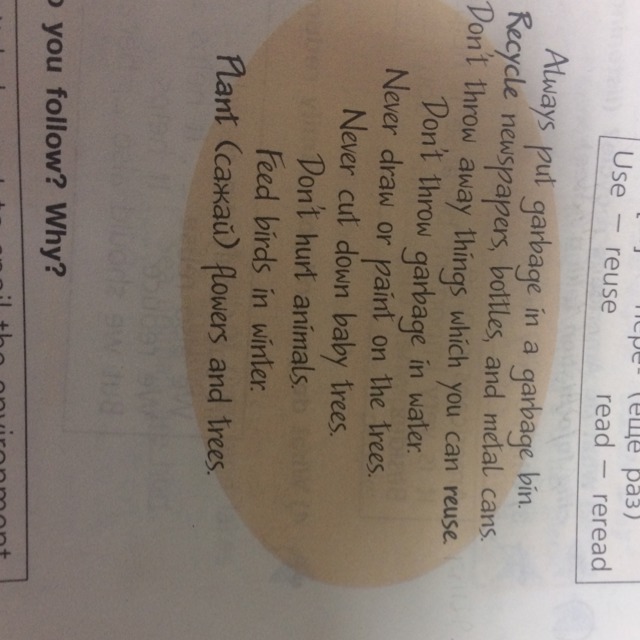 пере- (ещё раз)
Use – reuse read – reread
Always put garbage in a garbage bin.
Recycle newspapers, bottles, and metal cans.
Don't throw away things which you can reuse.
Don't throw garbage in water.
Never draw or paint on the trees.
Never cut down baby trees.
Don't hurt animals.
Feed birds in winter.
Plant (сажай) flowers and trees.
you follow? Why?
the environment